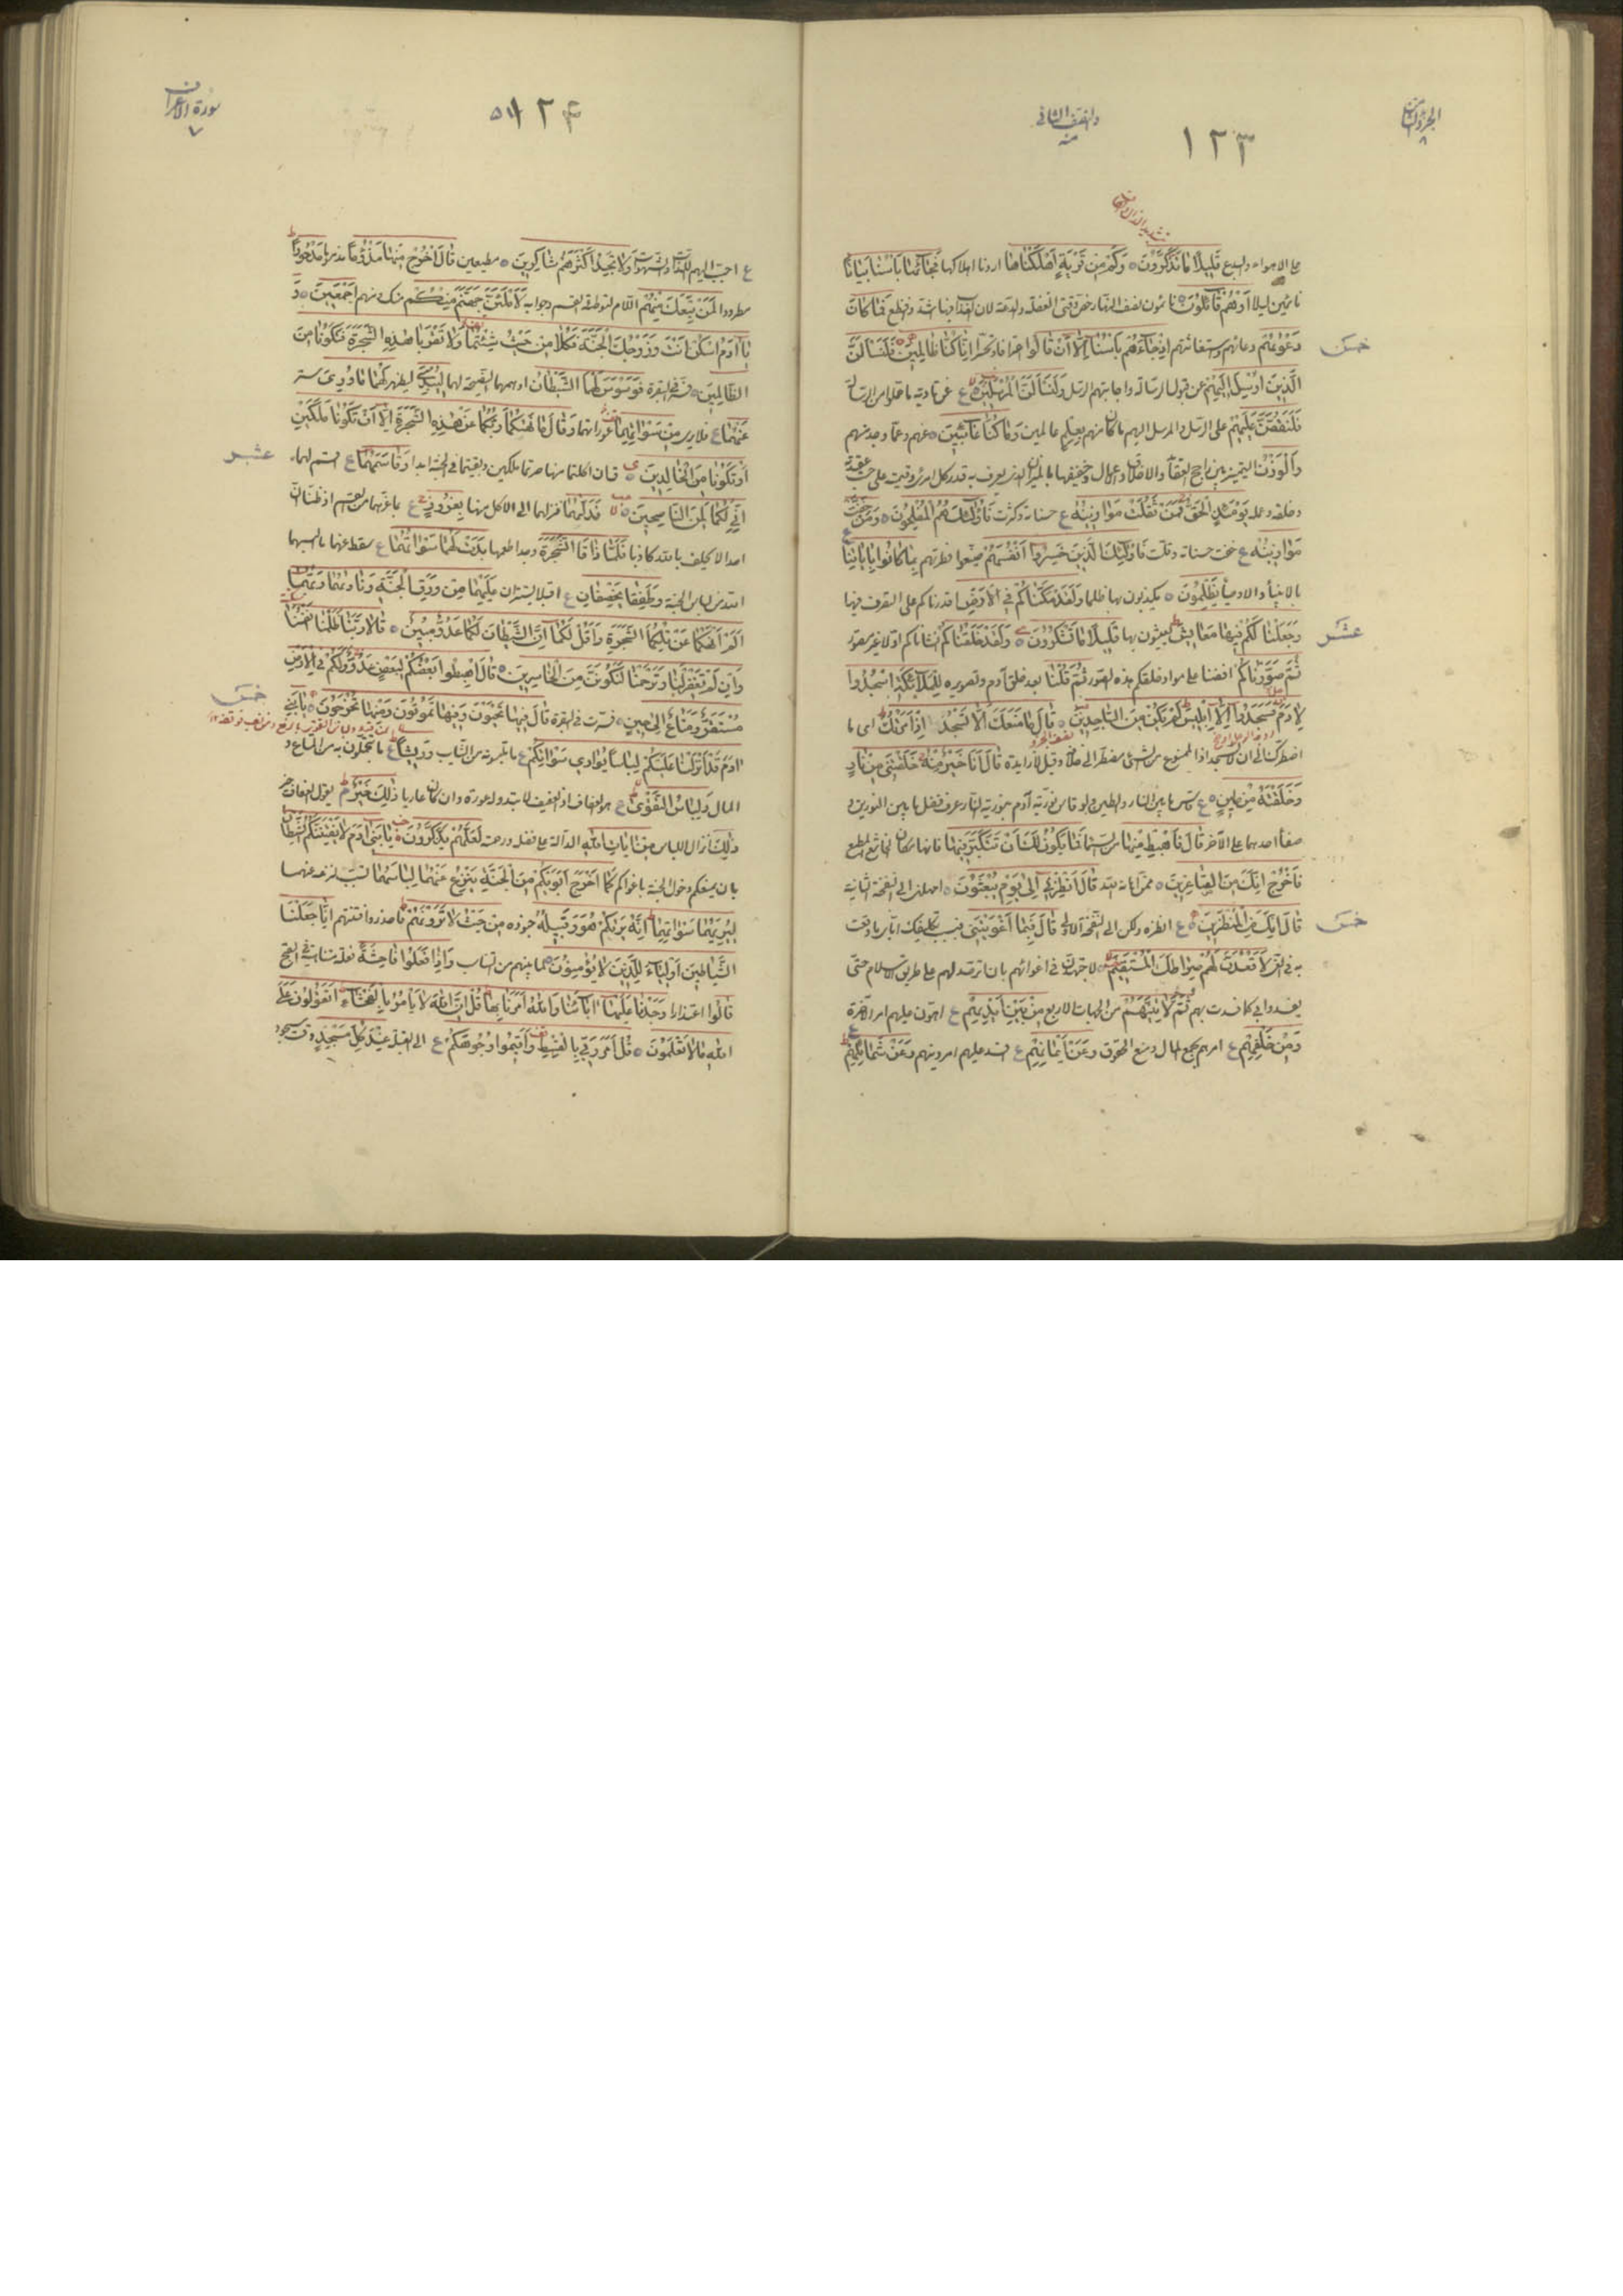 الجزو الثامن ٨
والنصف الثاني منه
١٢٣
على الاهواء والبدع قَلِيلاً مَا تَذَكَّرُونَ وَكَمْ مِنْ قَرْيَةٍ اَهْلَكْنَاهَا اردنا اهلاكها فَجَاءَهَا بَأْسُنَا بَيَاتًا
نائمين ليلا اَوْ هُمْ قَائِلُونَ نائمون نصف النهار خص وقتى الغفلة والدعة لان العذاب فيها اشد وافظع فَمَا كَانَ
دَعْوٰيهُمْ دعاؤهم واستغاثتهم اِذْ جَاءَهُمْ بَأْسُنَا اِلاَّ اَنْ قَالُوا اعترافا وتحسرا اِنَّا كُنَّا ظَالِمِينَ فَلَنَسْئَلَنَّ
خمس
الَّذِينَ اُرْسِلَ اِلَيْهِمْ عن قبول الرسالة واجابتهم الرسل وَلَنَسْئَلَنَّ الْمُرْسَلِينَ ع عن تادية ما حملوا من الرسالة
فَلَنَقُصَّنَّ عَلَيْهِمْ على الرسل والمرسل اليهم ما كان منهم بِعِلْمٍ عالمين وَمَا كُنَّا غَائِبِينَ عنهم وعما وجد منهم
وَالْوَزْنُ التمييز بين راجح العقائد والاخلاق والاعمال وخفيفها بالميزان الذى يعرف به قدر كل امرئ وقيمته على حسب عقيدته
وخلقه وعمله يَوْمَئِذٍ الْحَقُّ فَمَنْ ثَقُلَتْ مَوَازِينُهُ ع حسناته وكثرت فَاُولٰئِكَ هُمُ الْمُفْلِحُونَ وَمَنْ خَفَّتْ
مَوَازِينُهُ ع خفت حسناته وقلت فَاُولٰئِكَ الَّذِينَ خَسِرُوا اَنْفُسَهُمْ ضيعوا فطرتهم بِمَا كَانُوا بِاٰيَاتِنَا
بالانبياء والاوصياء يَظْلِمُونَ يكذبون بها ظلما وَلَقَدْ مَكَّنَّاكُمْ فِى الْاَرْضِ اقدرناكم على التصرف فيها
وَجَعَلْنَا لَكُمْ فِيهَا مَعَايِشَ تعيشون بها قَلِيلاً مَا تَشْكُرُونَ وَلَقَدْ خَلَقْنَاكُمْ انشاناكم اولا غير مصور
عشر
ثُمَّ صَوَّرْنَاكُمْ افضنا على مواد خلقكم هذه الصور ثُمَّ قُلْنَا بعد خلق آدم وتصويره لِلْمَلاَئِكَةِ اسْجُدُوا
لِاٰدَمَ فَسَجَدُوا اِلاَّ اِبْلِيسَ لَمْ يَكُنْ مِنَ السَّاجِدِينَ قَالَ مَا مَنَعَكَ اَلاَّ تَسْجُدَ اِذْ اَمَرْتُكَ اى ما
اضطرك الى ان لا تسجد اذ الممنوع من الشئ مضطر الى خلافه وقيل لا زايدة قَالَ اَنَا خَيْرٌ مِنْهُ خَلَقْتَنِى مِنْ نَارٍ
وَخَلَقْتَهُ مِنْ طِينٍ ع قاس ما بين النار والطين ولو قاس نورية آدم بنورية النار عرف فضل ما بين النورين و
صفاء احدهما على الآخر قَالَ فَاهْبِطْ مِنْهَا من السماء فَمَا يَكُونُ لَكَ اَنْ تَتَكَبَّرَ فِيهَا فانها مكان الخاشع المطيع
فَاخْرُجْ اِنَّكَ مِنَ الصَّاغِرِينَ ممن اهانه الله قَالَ اَنْظِرْنِى اِلٰى يَوْمِ يُبْعَثُونَ امهلنى الى النفخة الثانية
قَالَ اِنَّكَ مِنَ الْمُنْظَرِينَ ع انظره ولكن الى النفخة الاولى قَالَ فَبِمَا اَغْوَيْتَنِى فبسبب تكليفك اياى ما وقعت
خمس
به فى الغى لَاَقْعُدَنَّ لَهُمْ صِرَاطَكَ الْمُسْتَقِيمَ لاجتهدن فى اغوائهم بان ترصد لهم على طريق الاسلام حتى
يفسدوا بى كما فسدت بهم ثُمَّ لَاٰتِيَنَّهُمْ من الجهات الاربع مِنْ بَيْنِ اَيْدِيهِمْ ع اهون عليهم امر الآخرة
وَمِنْ خَلْفِهِمْ ع امرهم بجمع المال ومنع الحقوق وَعَنْ اَيْمَانِهِمْ ع افسد عليهم امر دينهم وَعَنْ شَمَائِلِهِمْ
سورة الاعراف ٧
١٢۴
ع احبب اليهم اللذات والشهوات وَلاَ تَجِدُ اَكْثَرَهُمْ شَاكِرِينَ مطيعين قَالَ اخْرُجْ مِنْهَا مَذْؤُمًا مذموما مَدْحُورًا
مطرودا لَمَنْ تَبِعَكَ مِنْهُمْ اللام لتوطئة القسم وجوابه لَاَمْلَئَنَّ جَهَنَّمَ مِنْكُمْ منك ومنهم اَجْمَعِينَ وَ
يَا اٰدَمُ اسْكُنْ اَنْتَ وَزَوْجُكَ الْجَنَّةَ فَكُلاَ مِنْ حَيْثُ شِئْتُمَا وَلاَ تَقْرَبَا هٰذِهِ الشَّجَرَةَ فَتَكُونَا مِنَ
الظَّالِمِينَ فسر فى البقرة فَوَسْوَسَ لَهُمَا الشَّيْطَانُ اوهمهما النصيحة لهما لِيُبْدِىَ ليظهر لَهُمَا مَا وُورِىَ ستر
عَنْهُمَا ع فلا يرى مِنْ سَوْاٰتِهِمَا عوراتهما وَقَالَ مَا نَهٰيكُمَا رَبُّكُمَا عَنْ هٰذِهِ الشَّجَرَةِ اِلاَّ اَنْ تَكُونَا مَلَكَيْنِ
اَوْ تَكُونَا مِنَ الْخَالِدِينَ فان اكلتما منها صرتما ملكين وبقيتما فى الجنة ابدا وَقَاسَمَهُمَا ع اقسم لهما
عشر
اِنِّى لَكُمَا لَمِنَ النَّاصِحِينَ فَدَلّٰيهُمَا فنزلهما الى الاكل منها بِغُرُورٍ ع بما غرهما من القسم اذ ظنا ان
احدا لا يحلف بالله كاذبا فَلَمَّا ذَاقَا الشَّجَرَةَ وجدا طعمها بَدَتْ لَهُمَا سَوْاٰتُهُمَا ع سقط عنهما ما البسهما
الله من لباس الجنة وَطَفِقَا يَخْصِفَانِ ع اقبلا يستتران عَلَيْهِمَا مِنْ وَرَقِ الْجَنَّةِ وَنَادٰيهُمَا رَبُّهُمَا
اَلَمْ اَنْهَكُمَا عَنْ تِلْكُمَا الشَّجَرَةِ وَاَقُلْ لَكُمَا اِنَّ الشَّيْطَانَ لَكُمَا عَدُوٌّ مُبِينٌ قَالاَ رَبَّنَا ظَلَمْنَا اَنْفُسَنَا
وَاِنْ لَمْ تَغْفِرْ لَنَا وَتَرْحَمْنَا لَنَكُونَنَّ مِنَ الْخَاسِرِينَ قَالَ اهْبِطُوا بَعْضُكُمْ لِبَعْضٍ عَدُوٌّ وَلَكُمْ فِى الْاَرْضِ
مُسْتَقَرٌّ وَمَتَاعٌ اِلٰى حِينٍ فسرت فى البقرة قَالَ فِيهَا تَحْيَوْنَ وَفِيهَا تَمُوتُونَ وَمِنْهَا تُخْرَجُونَ يَا بَنِى
خمس
اٰدَمَ قَدْ اَنْزَلْنَا عَلَيْكُمْ لِبَاسًا يُوَارِى سَوْاٰتِكُمْ ع ما تلبسونه من الثياب وَرِيشًا ع ما تتجملون به من المتاع و
المال وَلِبَاسُ التَّقْوٰى ع هو العفاف اذ العفيف لا تبدو له عورة وان كان عاريا ذٰلِكَ خَيْرٌ
ذٰلِكَ انزال اللباس مِنْ اٰيَاتِ اللهِ الدالة على فضله ورحمته لَعَلَّهُمْ يَذَّكَّرُونَ يَا بَنِى اٰدَمَ لاَ يَفْتِنَنَّكُمُ الشَّيْطَانُ
بان يمنعكم دخول الجنة باغوائكم كَمَا اَخْرَجَ اَبَوَيْكُمْ مِنَ الْجَنَّةِ يَنْزِعُ عَنْهُمَا لِبَاسَهُمَا تسبب لنزعه عنهما
لِيُرِيَهُمَا سَوْاٰتِهِمَا اِنَّهُ يَرٰيكُمْ هُوَ وَقَبِيلُهُ جنوده مِنْ حَيْثُ لاَ تَرَوْنَهُمْ فاحذروا فتنتهم اِنَّا جَعَلْنَا
الشَّيَاطِينَ اَوْلِيَاءَ لِلَّذِينَ لاَ يُؤْمِنُونَ لما بينهم من التناسب وَاِذَا فَعَلُوا فَاحِشَةً فعلة متناهية فى القبح
قَالُوا اعتذارا وَجَدْنَا عَلَيْهَا اٰبَاءَنَا وَاللهُ اَمَرَنَا بِهَا قُلْ اِنَّ اللهَ لاَ يَأْمُرُ بِالْفَحْشَاءِ اَتَقُولُونَ عَلَى
اللهِ مَا لاَ تَعْلَمُونَ قُلْ اَمَرَ رَبِّى بِالْقِسْطِ وَاَقِيمُوا وُجُوهَكُمْ ع الى القبلة عِنْدَ كُلِّ مَسْجِدٍ وقت سجود